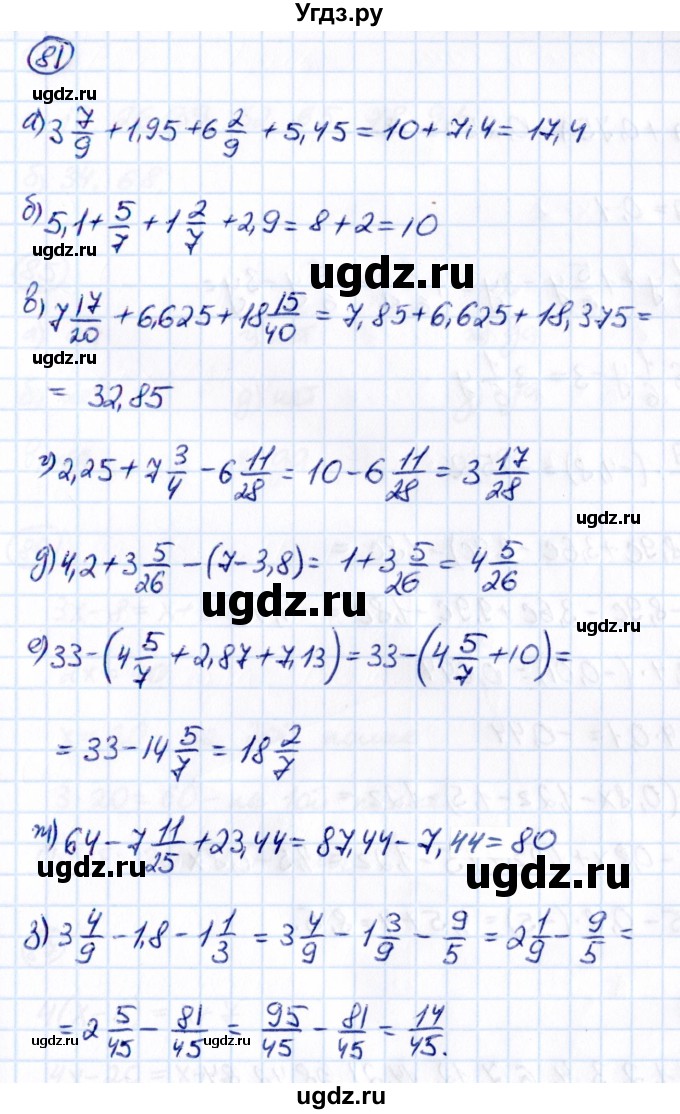 Угдз.ру
81
ugdz.ru
а) 3 7/9 + 1,95 + 6 2/9 + 5,45 = 10 + 7,4 = 17,4
ugdz.ru
б) 5,1 + 5/7 + 1 2/7 + 2,9 = 8 + 2 = 10
ugdz.ru
ugdz.ru
в) 7 17/20 + 6,625 + 18 15/40 = 7,85 + 6,625 + 18,375 =
= 32,85
г) 2,25 + 7 3/4 - 6 11/28 = 10 - 6 11/28 = 3 17/28
ugdz.ru
ugdz.ru
д) 4,2 + 3 5/26 - (7 - 3,8) = 1 + 3 5/26 = 4 5/26
ugdz.ru
ugdz.ru
е) 33 - (4 5/7 + 2,87 + 7,13) = 33 - (4 5/7 + 10) =
= 33 - 14 5/7 = 18 2/7
ж) 64 - 7 11/25 + 23,44 = 87,44 - 7,44 = 80
ugdz.ru
ugdz.ru
з) 3 4/9 - 1,8 - 1 1/3 = 3 4/9 - 1 3/9 - 9/5 = 2 1/9 - 9/5 =
= 2 5/45 - 81/45 = 95/45 - 81/45 = 14/45.
ugdz.ru
ugdz.ru
ugdz.ru